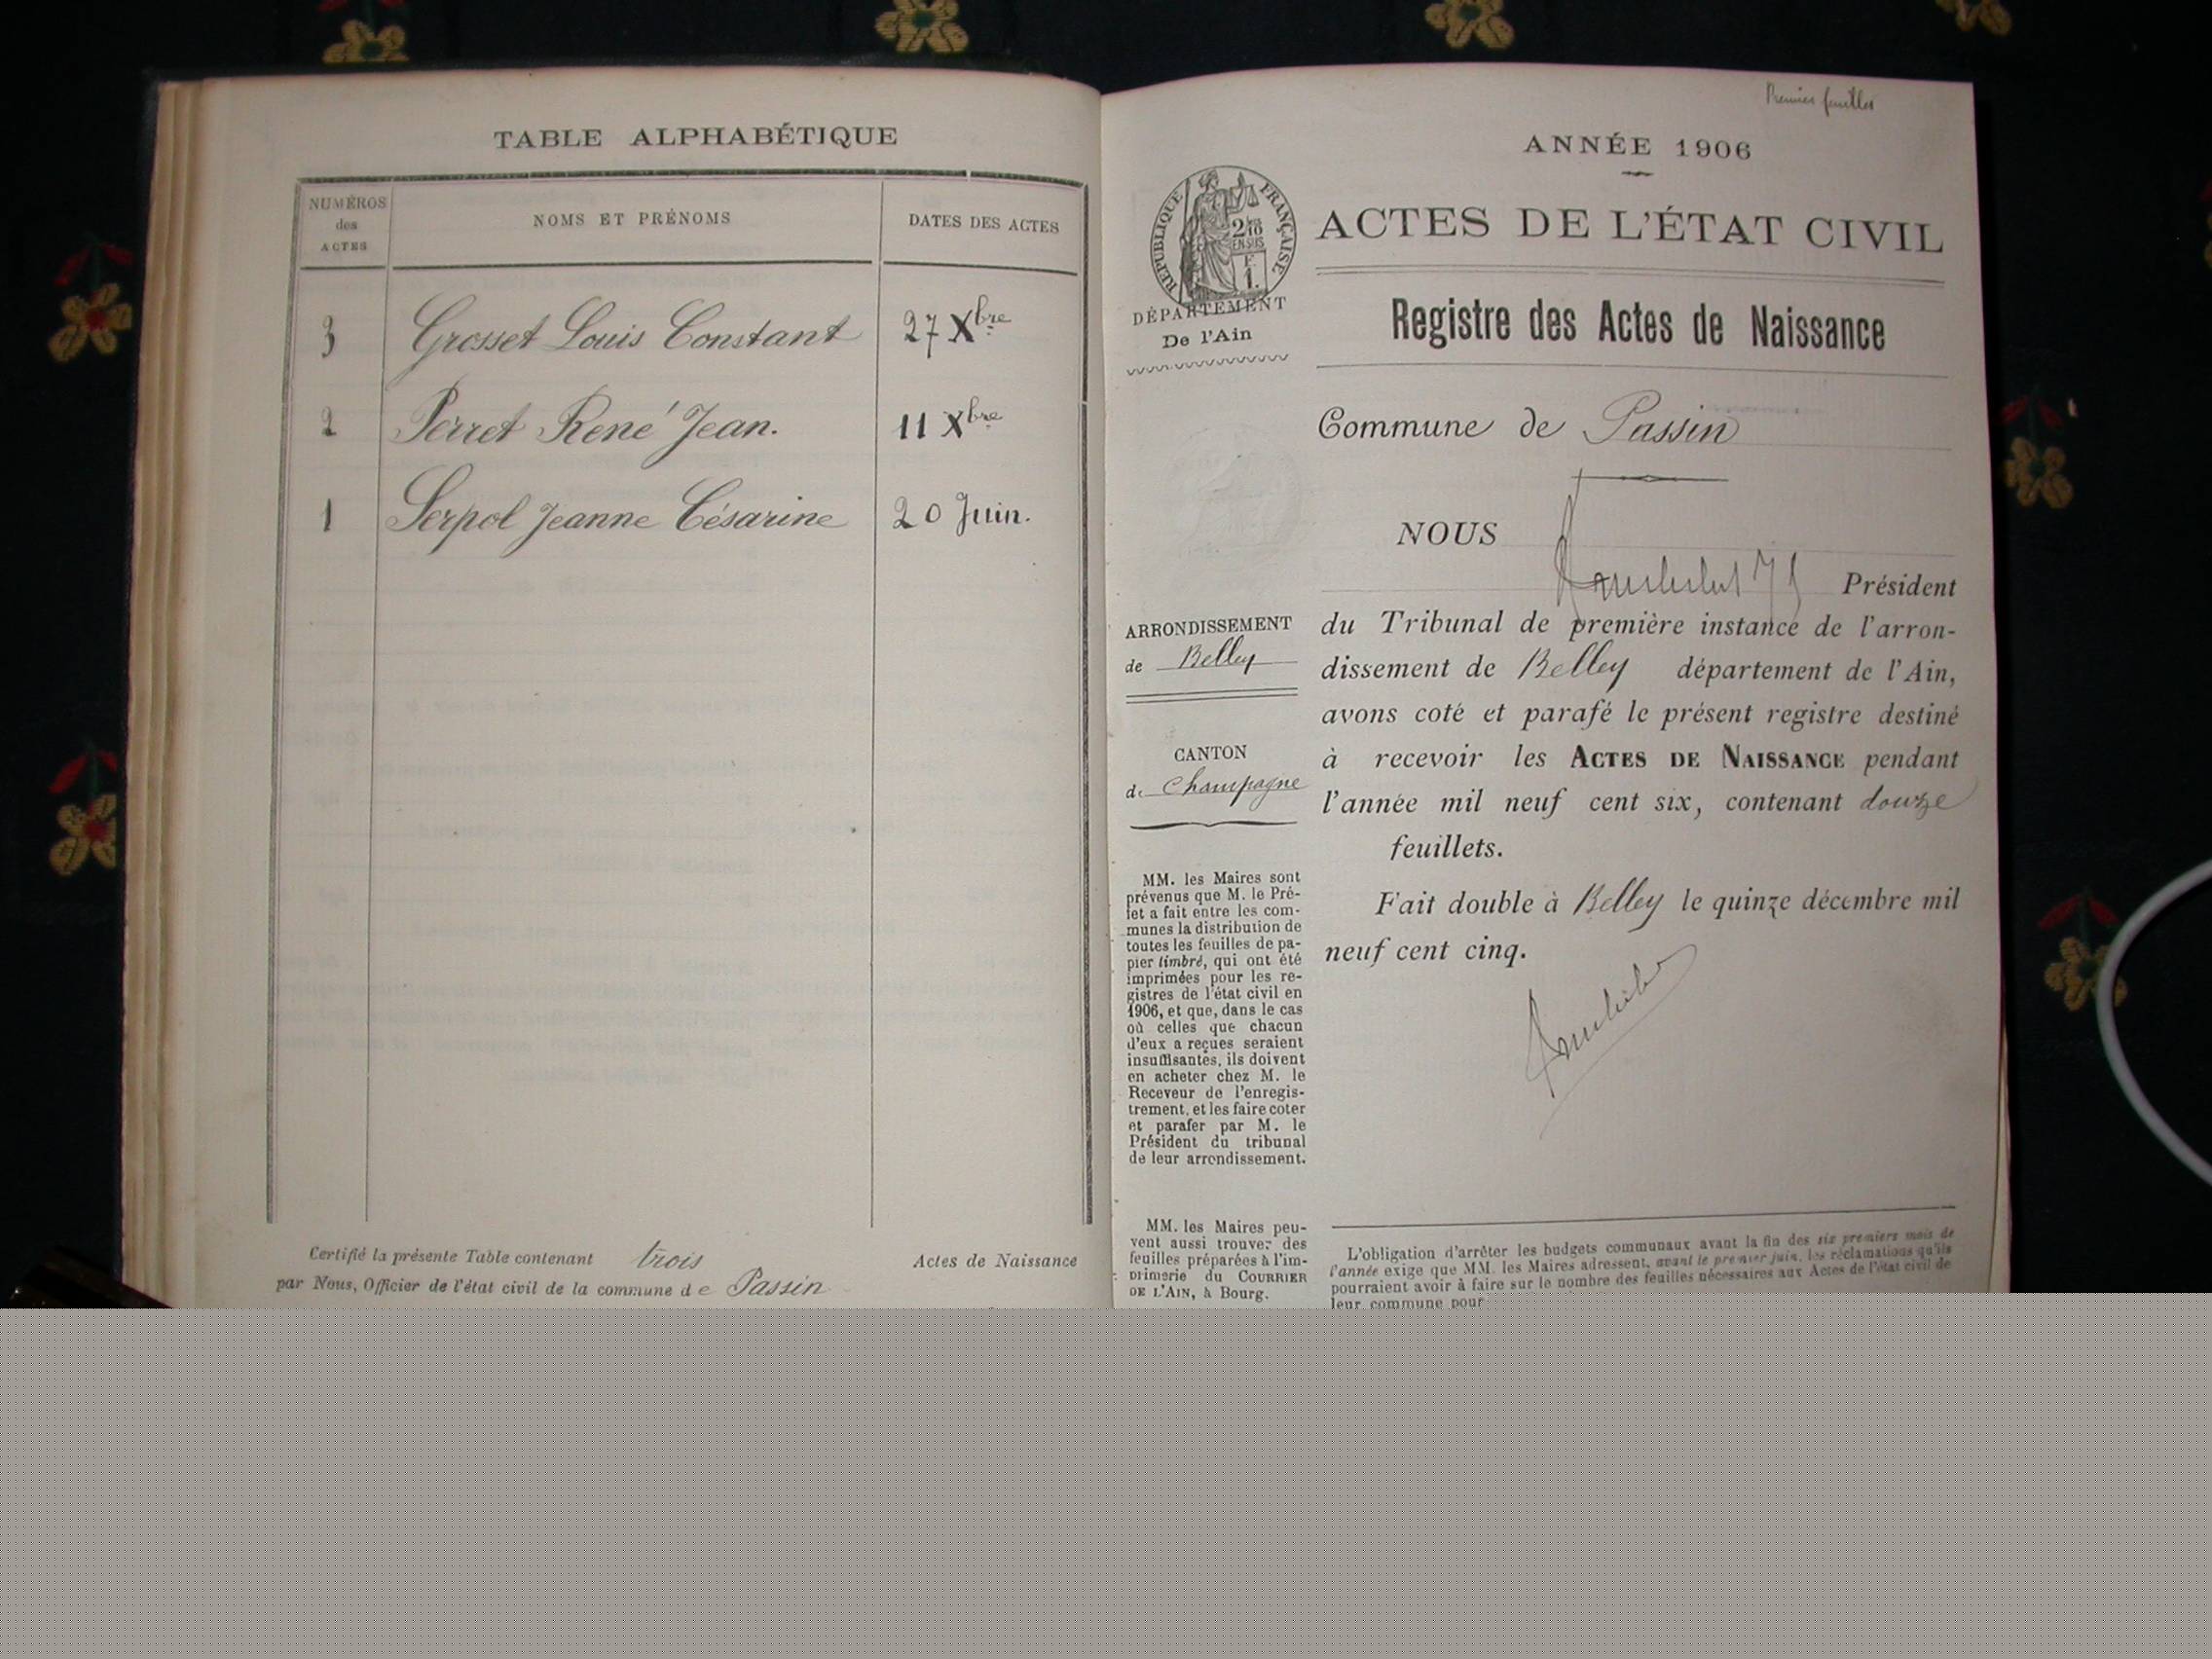 TABLE ALPHABÉTIQUE
NUMÉROS
des
ACTES
NOMS ET PRÉNOMS
DATES DES ACTES
3 Grosset Louis Constant 27 Xbre
2 Perret René Jean. 11 Xbre
1 Serpol Jeanne Césarine 20 Juin.
Certifié la présente Table contenant trois Actes de Naissance
par Nous, Officier de l'état civil de la commune de Passin
Premier feuillet
ANNÉE 1906
RÉPUBLIQUE FRANÇAISE
2/10
EN SUS
F.
1.
DÉPARTEMENT
De l'Ain
ACTES DE L'ÉTAT CIVIL
Registre des Actes de Naissance
Commune de Passin
NOUS
Président
du Tribunal de première instance de l'arron-
dissement de Belley département de l'Ain,
avons coté et parafé le présent registre destiné
à recevoir les ACTES DE NAISSANCE pendant
l'année mil neuf cent six, contenant douze
feuillets.
Fait double à Belley le quinze décembre mil
neuf cent cinq.
ARRONDISSEMENT
de Belley
CANTON
de Champagne
MM. les Maires sont
prévenus que M. le Pré-
fet a fait entre les com-
munes la distribution de
toutes les feuilles de pa-
pier timbré, qui ont été
imprimées pour les re-
gistres de l'état civil en
1906, et que, dans le cas
où celles que chacun
d'eux a reçues seraient
insuffisantes, ils doivent
en acheter chez M. le
Receveur de l'enregis-
trement, et les faire coter
et parafer par M. le
Président du tribunal
de leur arrondissement.
MM. les Maires peu-
vent aussi trouver des
feuilles préparées à l'im-
primerie du COURRIER
DE L'AIN, à Bourg.
L'obligation d'arrêter les budgets communaux avant la fin des six premiers mois de
l'année exige que MM. les Maires adressent, avant le premier juin, les réclamations qu'ils
pourraient avoir à faire sur le nombre des feuilles nécessaires aux Actes de l'état civil de
leur commune pour